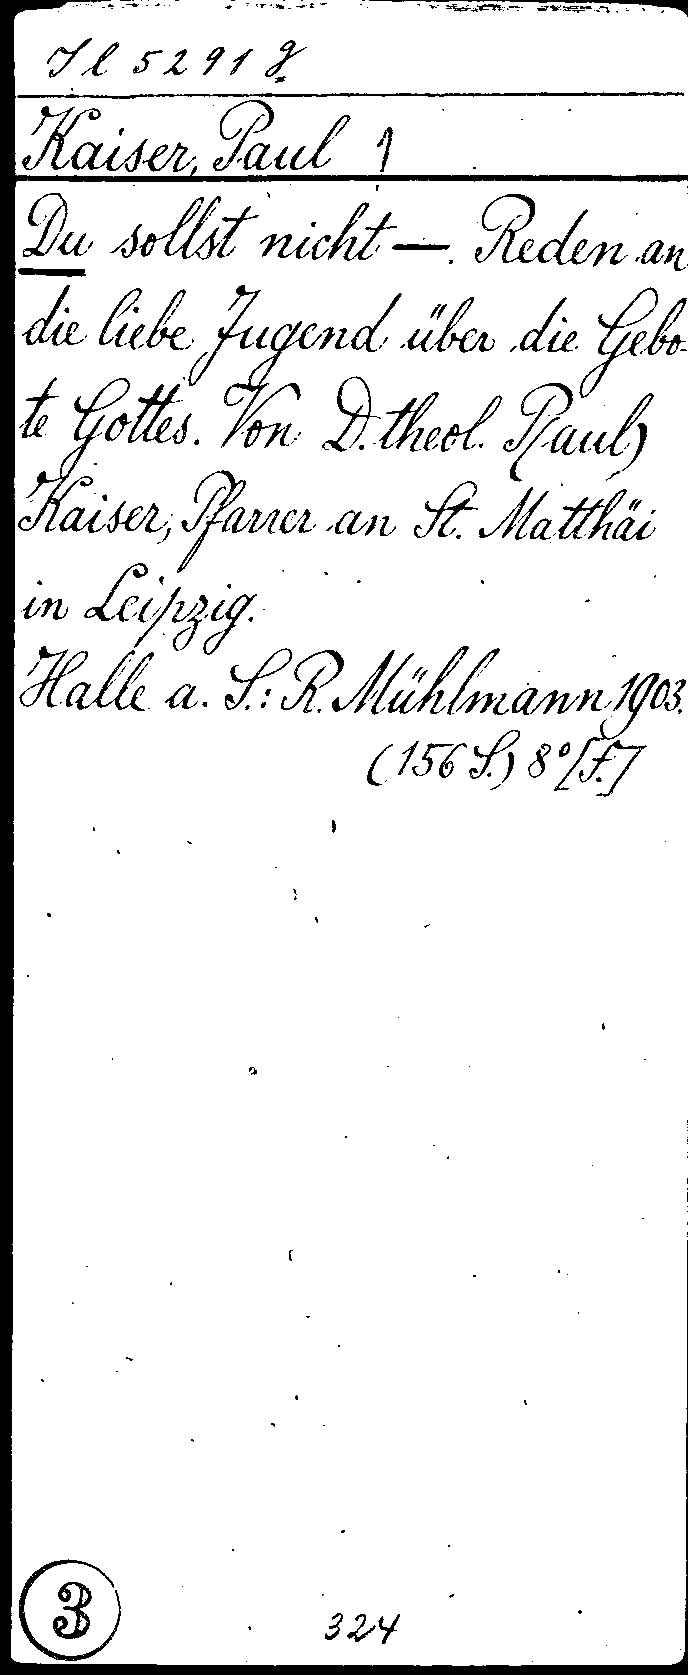 Il 5291 g
Kaiser, Paul 1
Du sollst nicht —. Reden an
die liebe Jugend über die Gebo-
te Gottes. Von D. theol. P(aul)
Kaiser, Pfarrer an St. Matthäi
in Leipzig.
Halle a. S.: R. Mühlmann 1903.
(156 S.) 8° [F.]
3
324